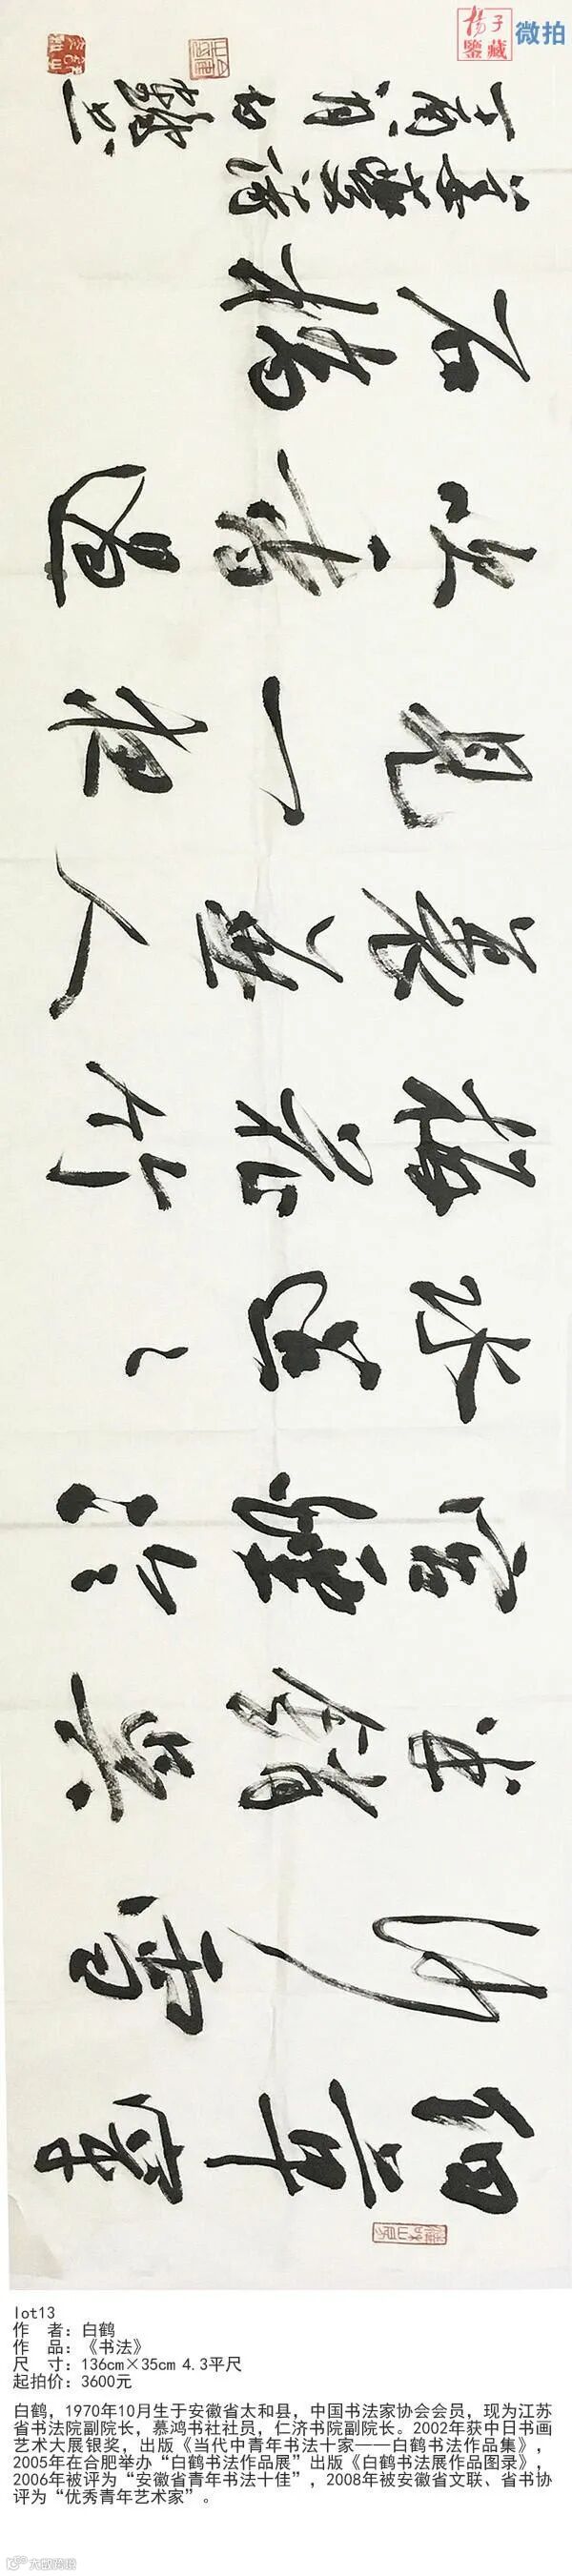 杨子
鉴藏
微拍
细草穿
沙雪
半销吴
宫烟冷
水迢〻
梅花竹
里无人
见一夜
吹香过
石桥
姜夔诗
一首
白
鹤书
lot13
作 者：白鹤
作 品：《书法》
尺 寸：136cm×35cm 4.3平尺
起拍价：3600元
白鹤，1970年10月生于安徽省太和县，中国书法家协会会员，现为江苏
省书法院副院长，慕鸿书社社员，仁济书院副院长。2002年获中日书画
艺术大展银奖，出版《当代中青年书法十家——白鹤书法作品集》，
2005年在合肥举办“白鹤书法作品展”出版《白鹤书法展作品图录》，
2006年被评为“安徽省青年书法十佳”，2008年被安徽省文联、省书协
评为“优秀青年艺术家”。